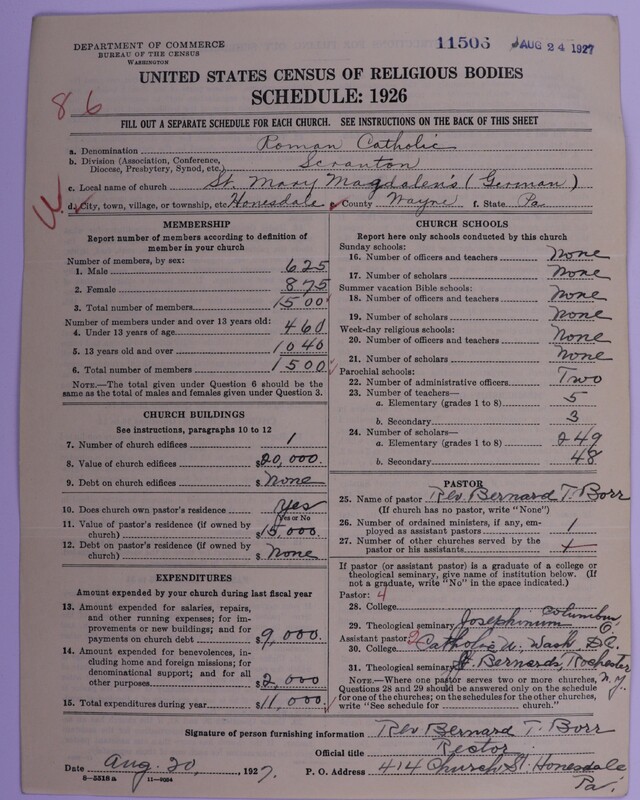 DEPARTMENT OF COMMERCE
BUREAU OF THE CENSUS
WASHINGTON
11506 AUG 24 1927
UNITED STATES CENSUS OF RELIGIOUS BODIES
SCHEDULE: 1926
86
FILL OUT A SEPARATE SCHEDULE FOR EACH CHURCH. SEE INSTRUCTIONS ON THE BACK OF THIS SHEET
a. Denomination Roman Catholic
b. Division (Association, Conference, Diocese, Presbytery, Synod, etc.) Scranton
c. Local name of church St. Mary Magdalen's (German)
d. City, town, village, or township, etc. Honesdale e. County Wayne f. State Pa.
MEMBERSHIP
Report number of members according to definition of
member in your church
Number of members, by sex:
1. Male 625
2. Female 875
3. Total number of members 1500
Number of members under and over 13 years old:
4. Under 13 years of age 460
5. 13 years old and over 1040
6. Total number of members 1500
NOTE.—The total given under Question 6 should be the
same as the total of males and females given under Question 3.
CHURCH BUILDINGS
See instructions, paragraphs 10 to 12
7. Number of church edifices 1
8. Value of church edifices $20,000.
9. Debt on church edifices $None
10. Does church own pastor's residence? Yes
Yes or No
11. Value of pastor's residence (if owned by
church) $15,000.
12. Debt on pastor's residence (if owned by
church) $None
EXPENDITURES
Amount expended by your church during last fiscal year
13. Amount expended for salaries, repairs,
and other running expenses; for im-
provements or new buildings; and for
payments on church debt $9,000.
14. Amount expended for benevolences, in-
cluding home and foreign missions; for
denominational support; and for all
other purposes $2,000
15. Total expenditures during year $11,000.
CHURCH SCHOOLS
Report here only schools conducted by this church
Sunday schools:
16. Number of officers and teachers None
17. Number of scholars None
Summer vacation Bible schools:
18. Number of officers and teachers None
19. Number of scholars None
Week-day religious schools:
20. Number of officers and teachers None
21. Number of scholars None
Parochial schools:
22. Number of administrative officers Two
23. Number of teachers—
a. Elementary (grades 1 to 8) 5
b. Secondary 3
24. Number of scholars—
a. Elementary (grades 1 to 8) 249
b. Secondary 48
PASTOR
25. Name of pastor Rev. Bernard T. Borr
(If church has no pastor, write "None")
26. Number of ordained ministers, if any, em-
ployed as assistant pastors 1
27. Number of other churches served by the
pastor or his assistants 1
If pastor (or assistant pastor) is a graduate of a college or
theological seminary, give name of institution below. (If
not a graduate, write "No" in the space indicated.)
Pastor: 4
28. College
29. Theological seminary Josephinum Columbus, O.
Assistant pastor: 2
30. College Catholic U. Wash. D.C.
31. Theological seminary St. Bernards, Rochester N.Y.
NOTE.—Where one pastor serves two or more churches,
Questions 28 and 29 should be answered only on the schedule
for one of the churches; on the schedules for the other churches,
write "See schedule for church."
Signature of person furnishing information Rev Bernard T. Borr
Official title Rector
Date Aug. 20, 1927. P. O. Address 414 Church St. Honesdale Pa.
8-5518 a 11-9054